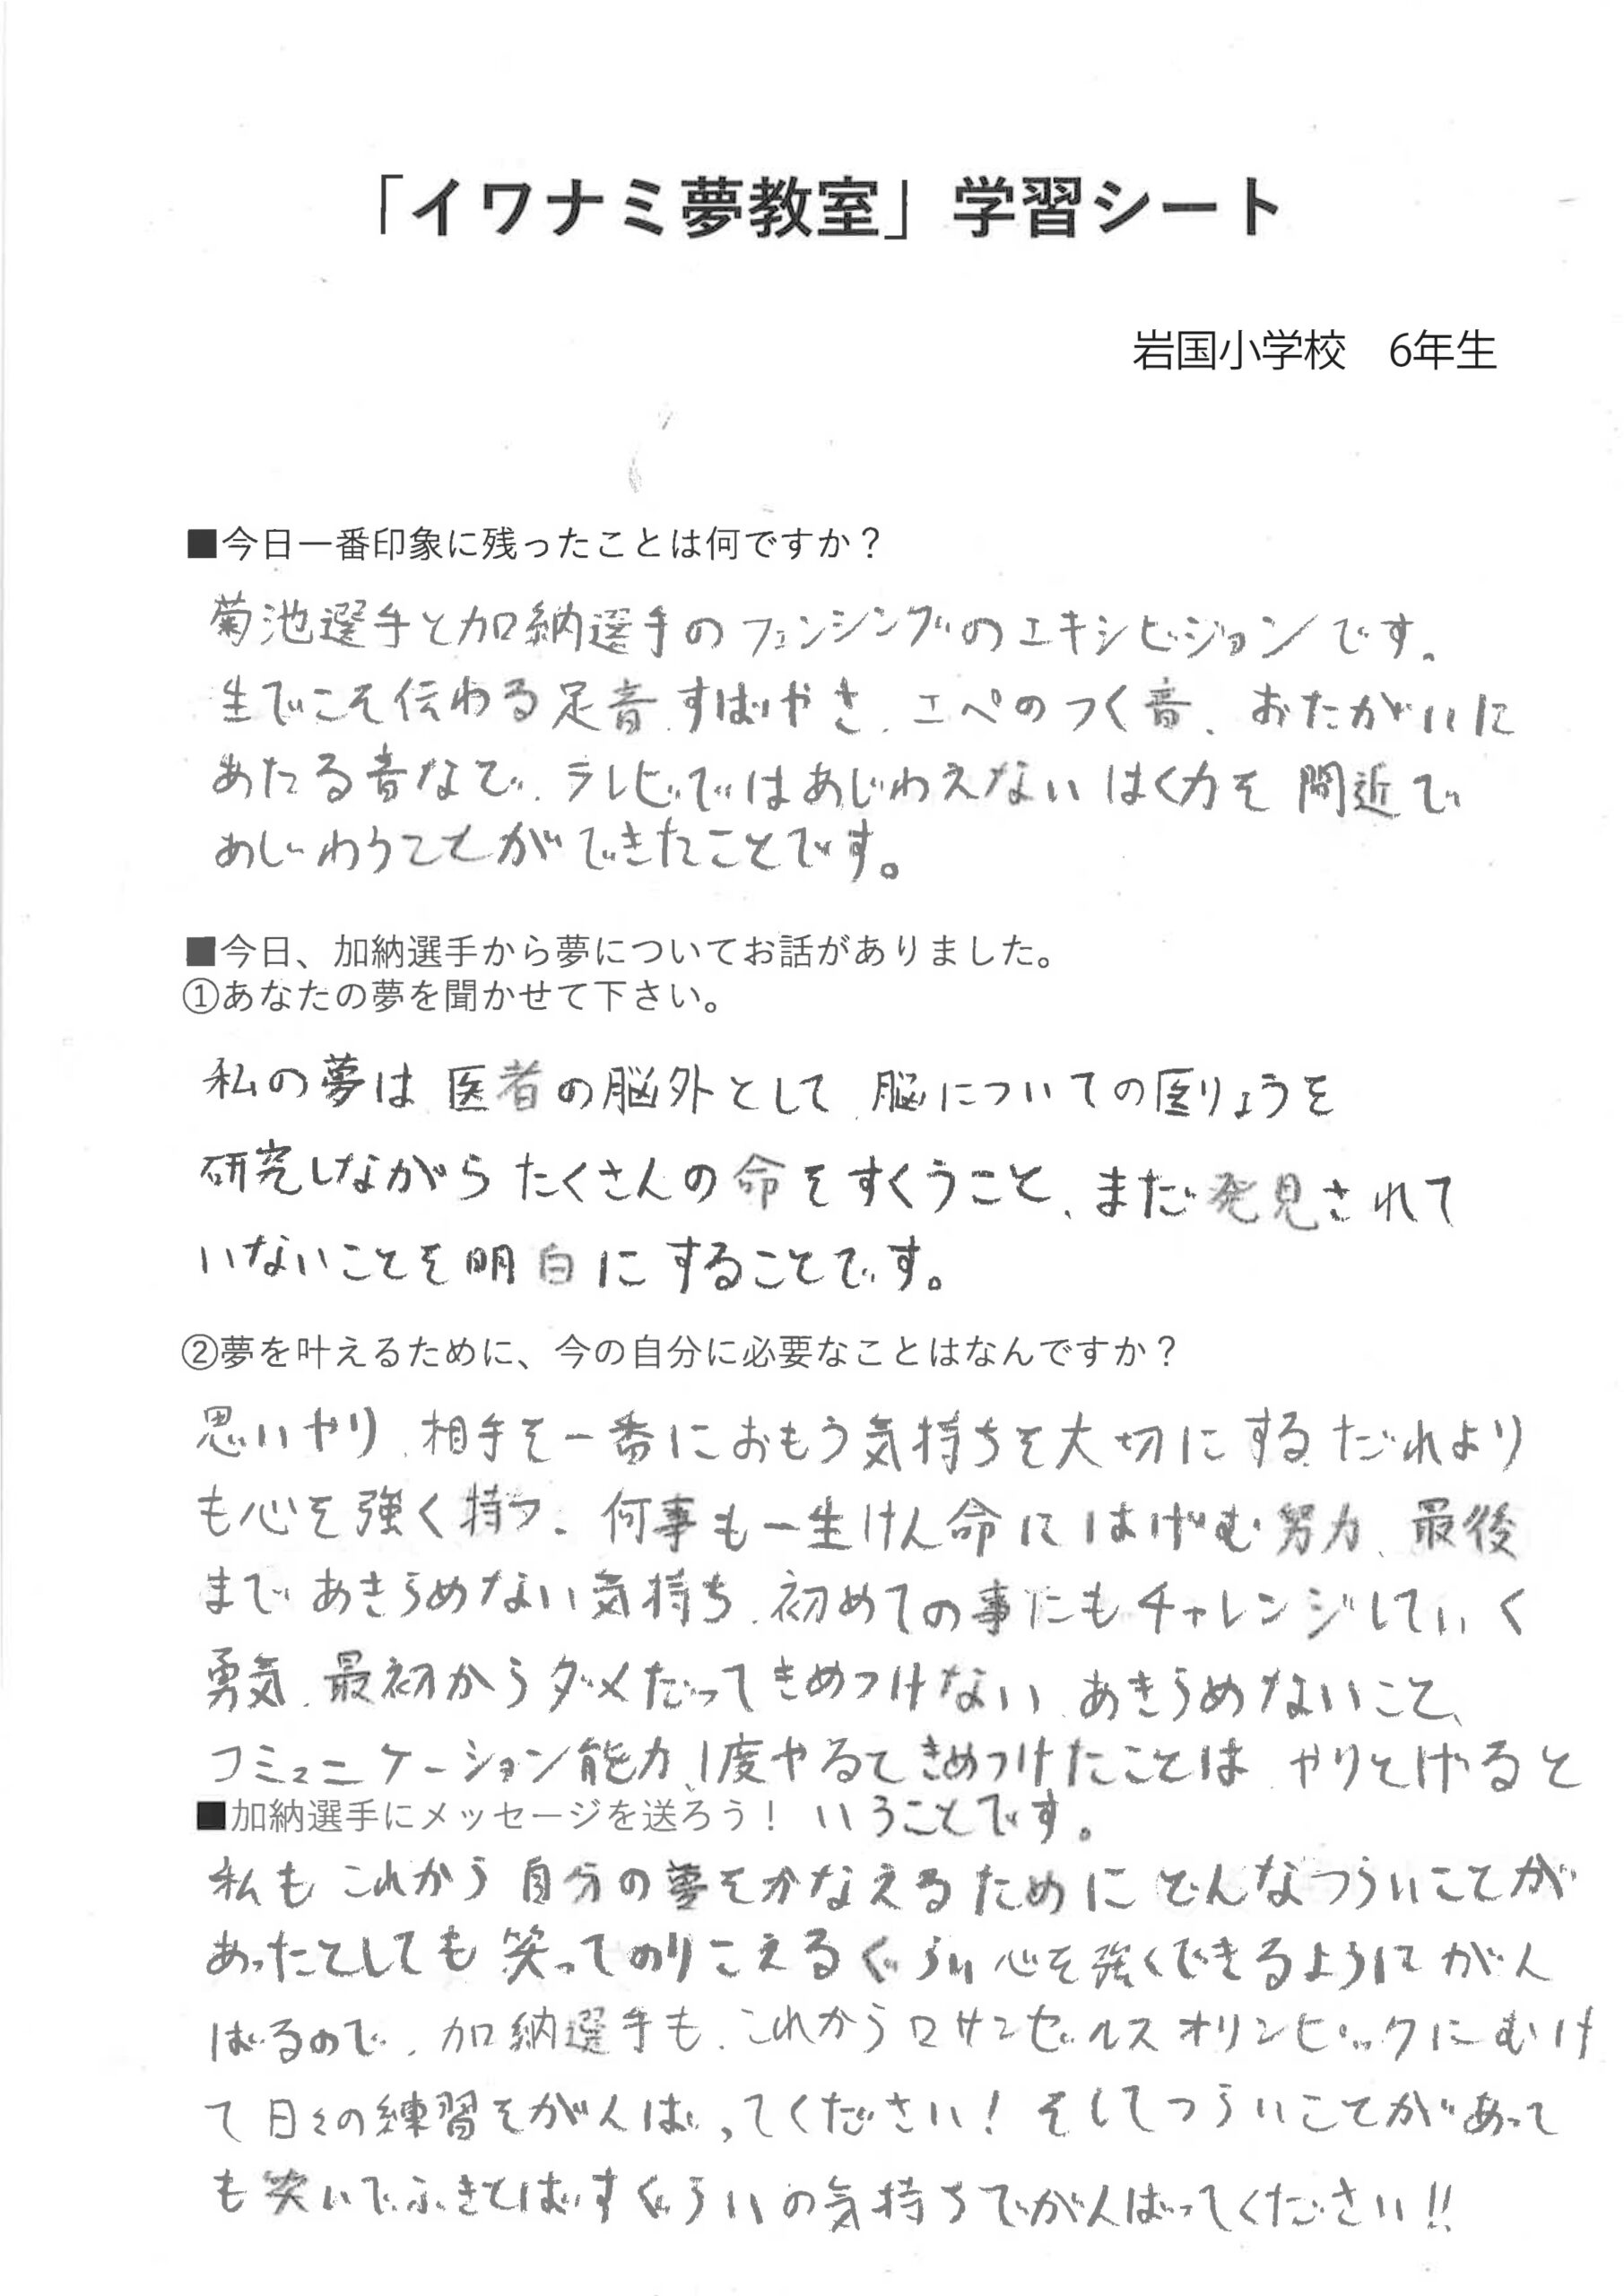 「イワナミ夢教室」学習シート
岩国小学校　6年生
■今日一番印象に残ったことは何ですか？
菊池選手と加納選手のフェンシングのエキシビジョンです。
生でこそ伝わる足音、すばやさ、エペのつく音、おたがいに
あたる音など、テレビではあじわえないはく力を間近で
あじわうことができたことです。
■今日、加納選手から夢についてお話がありました。
①あなたの夢を聞かせて下さい。
私の夢は医者の脳外として、脳についての医りょうを
研究しながらたくさんの命をすくうこと、まだ発見されて
いないことを明白にすることです。
②夢を叶えるために、今の自分に必要なことはなんですか？
思いやり、相手を一番におもう気持ちを大切にする、だれより
も心を強く持つ、何事も一生けん命にはげむ努力、最後
まであきらめない気持ち、初めての事にもチャレンジしていく
勇気、最初からダメだってきめつけない、あきらめないこと、
コミュニケーション能力、1度やるときめつけたことは、やりとげると
いうことです。
■加納選手にメッセージを送ろう！
私もこれから自分の夢をかなえるためにどんなつらいことが
あったとしても笑ってのりこえるぐらい心を強くできるようにがん
ばるので、加納選手も、これからロサンゼルスオリンピックにむけ
て日々の練習をがんばってください！そしてつらいことがあって
も笑いでふきとばすぐらいの気持ちでがんばってください!!